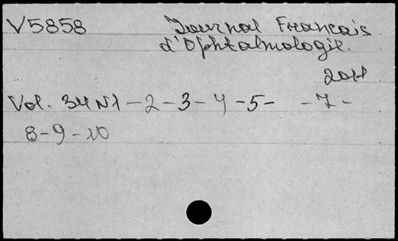 V5858 Journal Français
d'Ophtalmologie.
2011
Vol. 34 N1-2-3-4-5- -7-
8-9-10